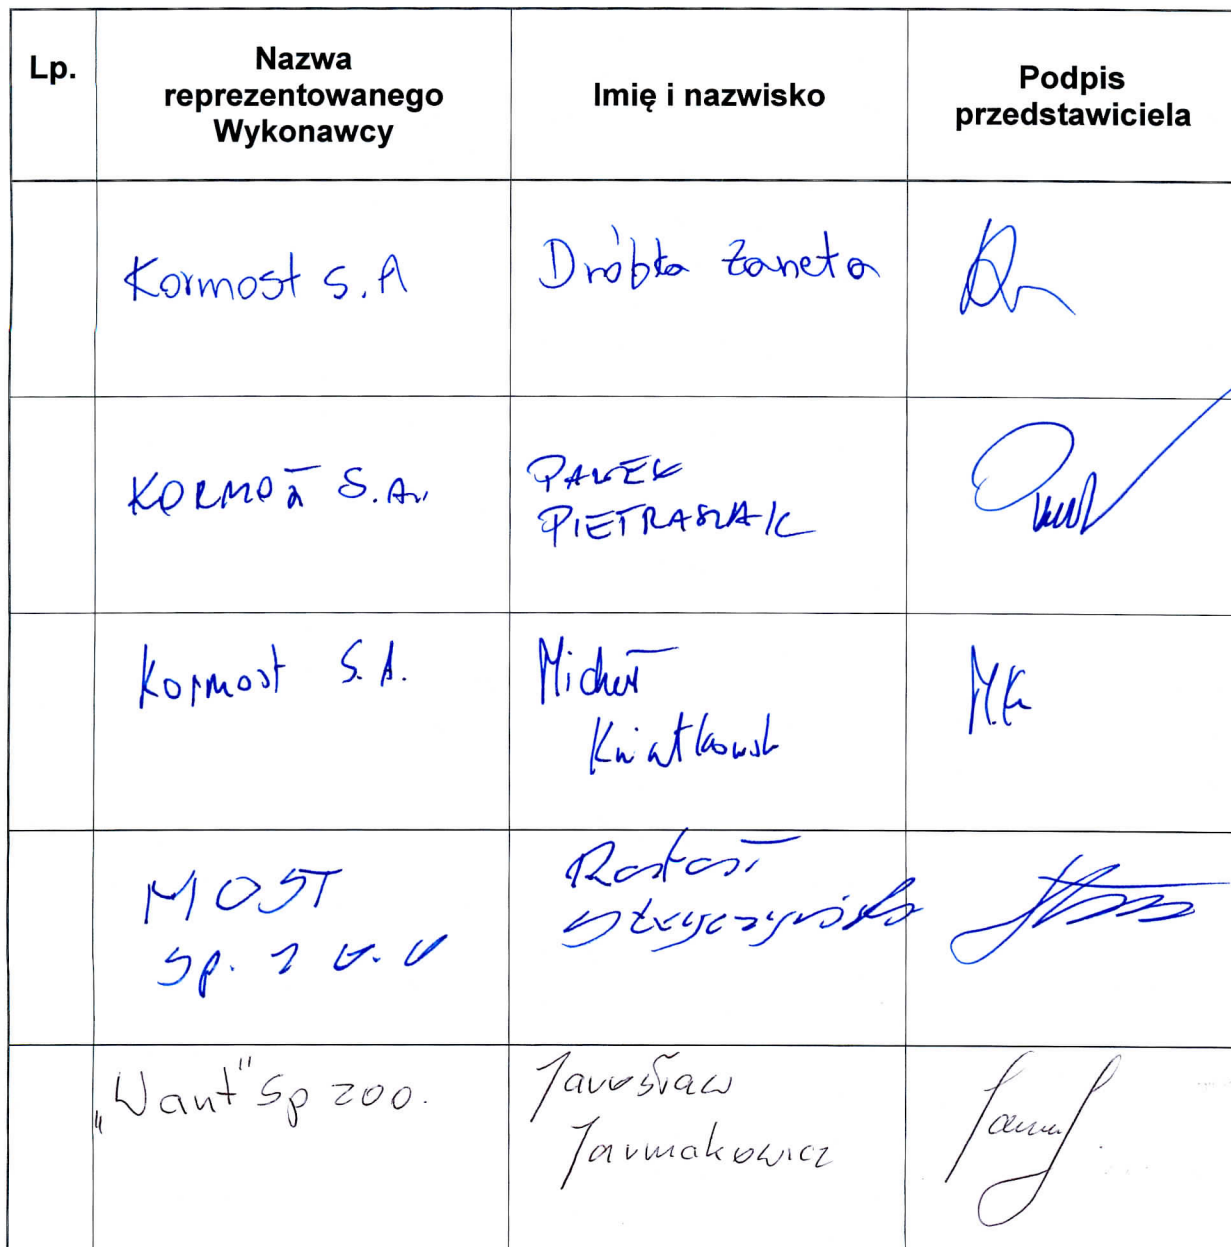 Lp.
Nazwa
reprezentowanego
Wykonawcy
Imię i nazwisko
Podpis
przedstawiciela
Kormost S.A
Dróbka Żaneta
S.A.
PAWEŁ
PIETRASZAK
Kormost S.A.
Michał
Kwiatkowski
M.K
MOST
Sp. z o.o
Rafał
„Want" Sp zoo.
Jarosław
Jarmakowicz